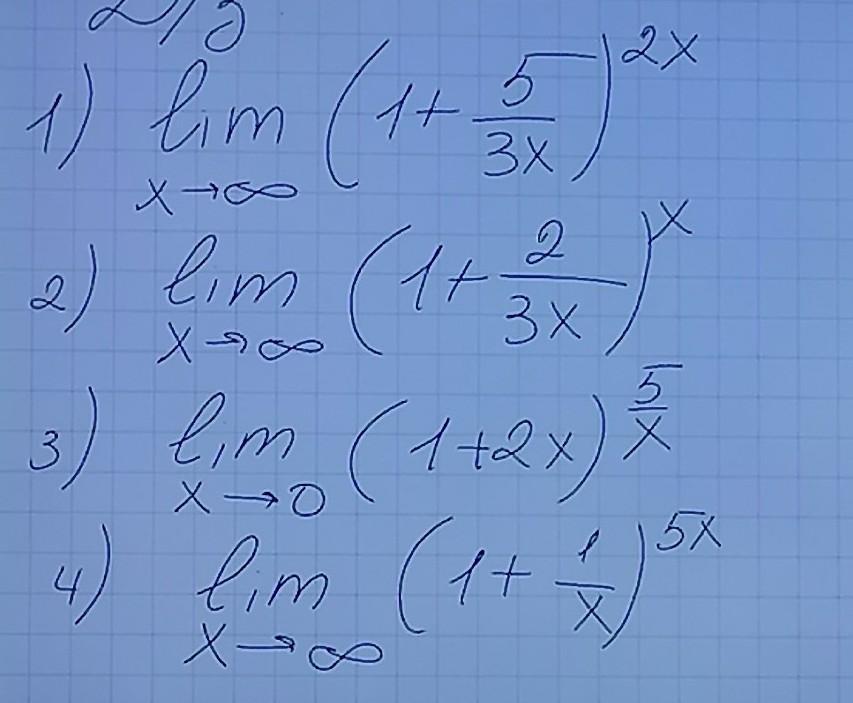 Д/з
1) lim x→∞ (1 + 5/3x)^2x
2) lim x→∞ (1 + 2/3x)^x
3) lim x→0 (1+2x)^5/x
4) lim x→∞ (1 + 1/x)^5x